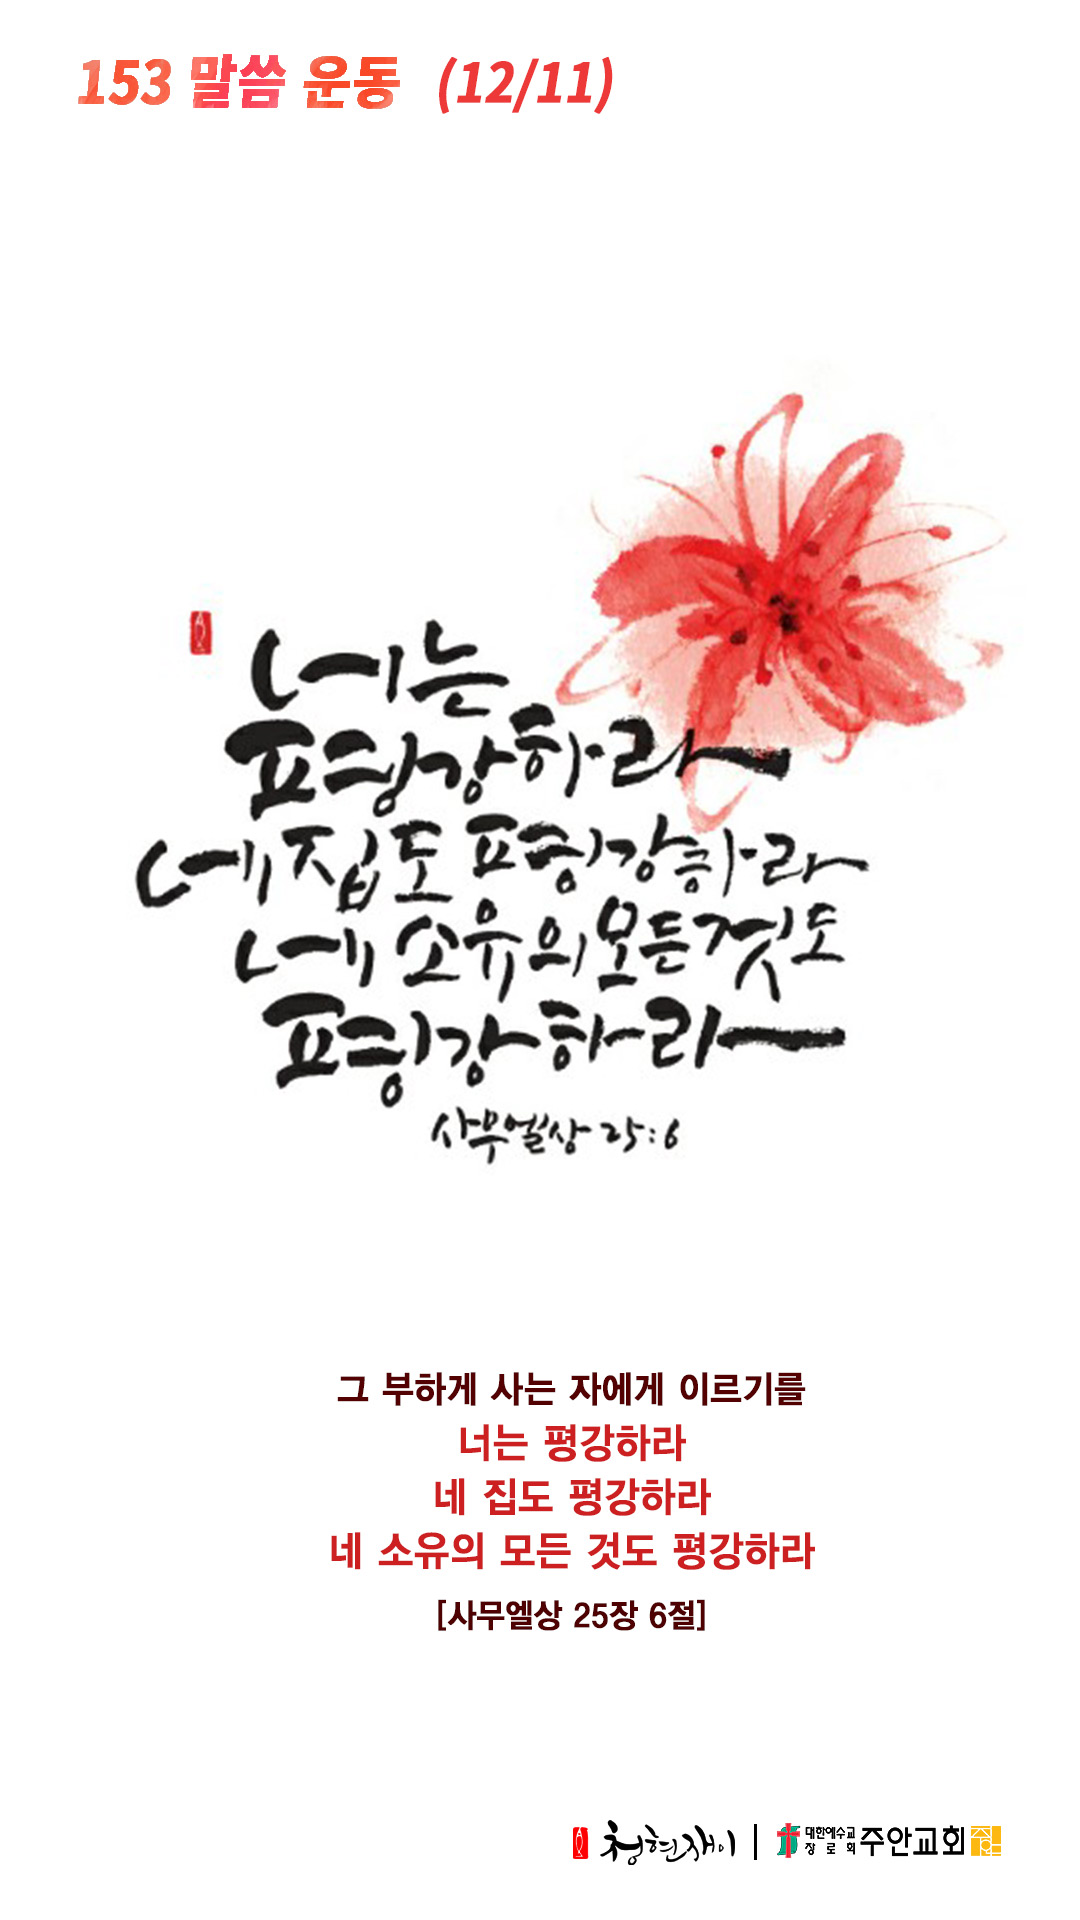 153 말씀 운동 (12/11)
너는
평강하라
네 집도 평강하라
네 소유의 모든 것도
평강하라
사무엘상 25:6
그 부하게 사는 자에게 이르기를
너는 평강하라
네 집도 평강하라
네 소유의 모든 것도 평강하라
[사무엘상 25장 6절]
청현재이 | 대한예수교 장로회 주안교회